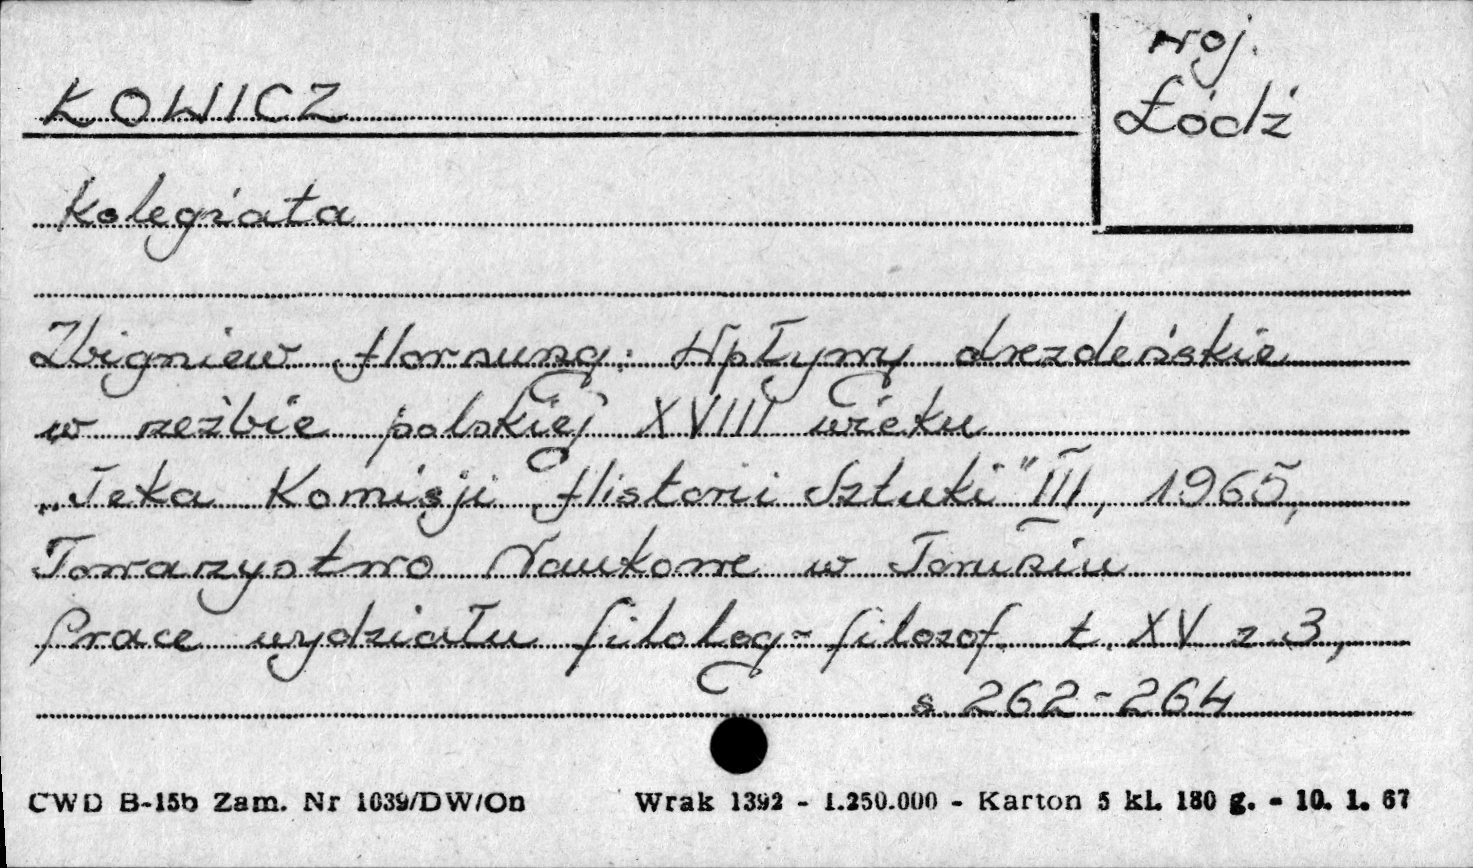 woj.
KOWICZ
Łódź
Kolegiata
Zbigniew Hornung: Wpływy drezdeńskie
w rzeźbie polskiej XVIII wieku
„Teka Komisji Historii Sztuki" III, 1965,
Towarzystwo Naukowe w Toruniu
Prace wydziału filolog-filozof. t. XV z 3,
s 262-264
CWD B-15b Zam. Nr 1039/DW/On Wrak 1392 - 1.250.000 - Karton 5 kl. 180 g. - 10. 1. 67